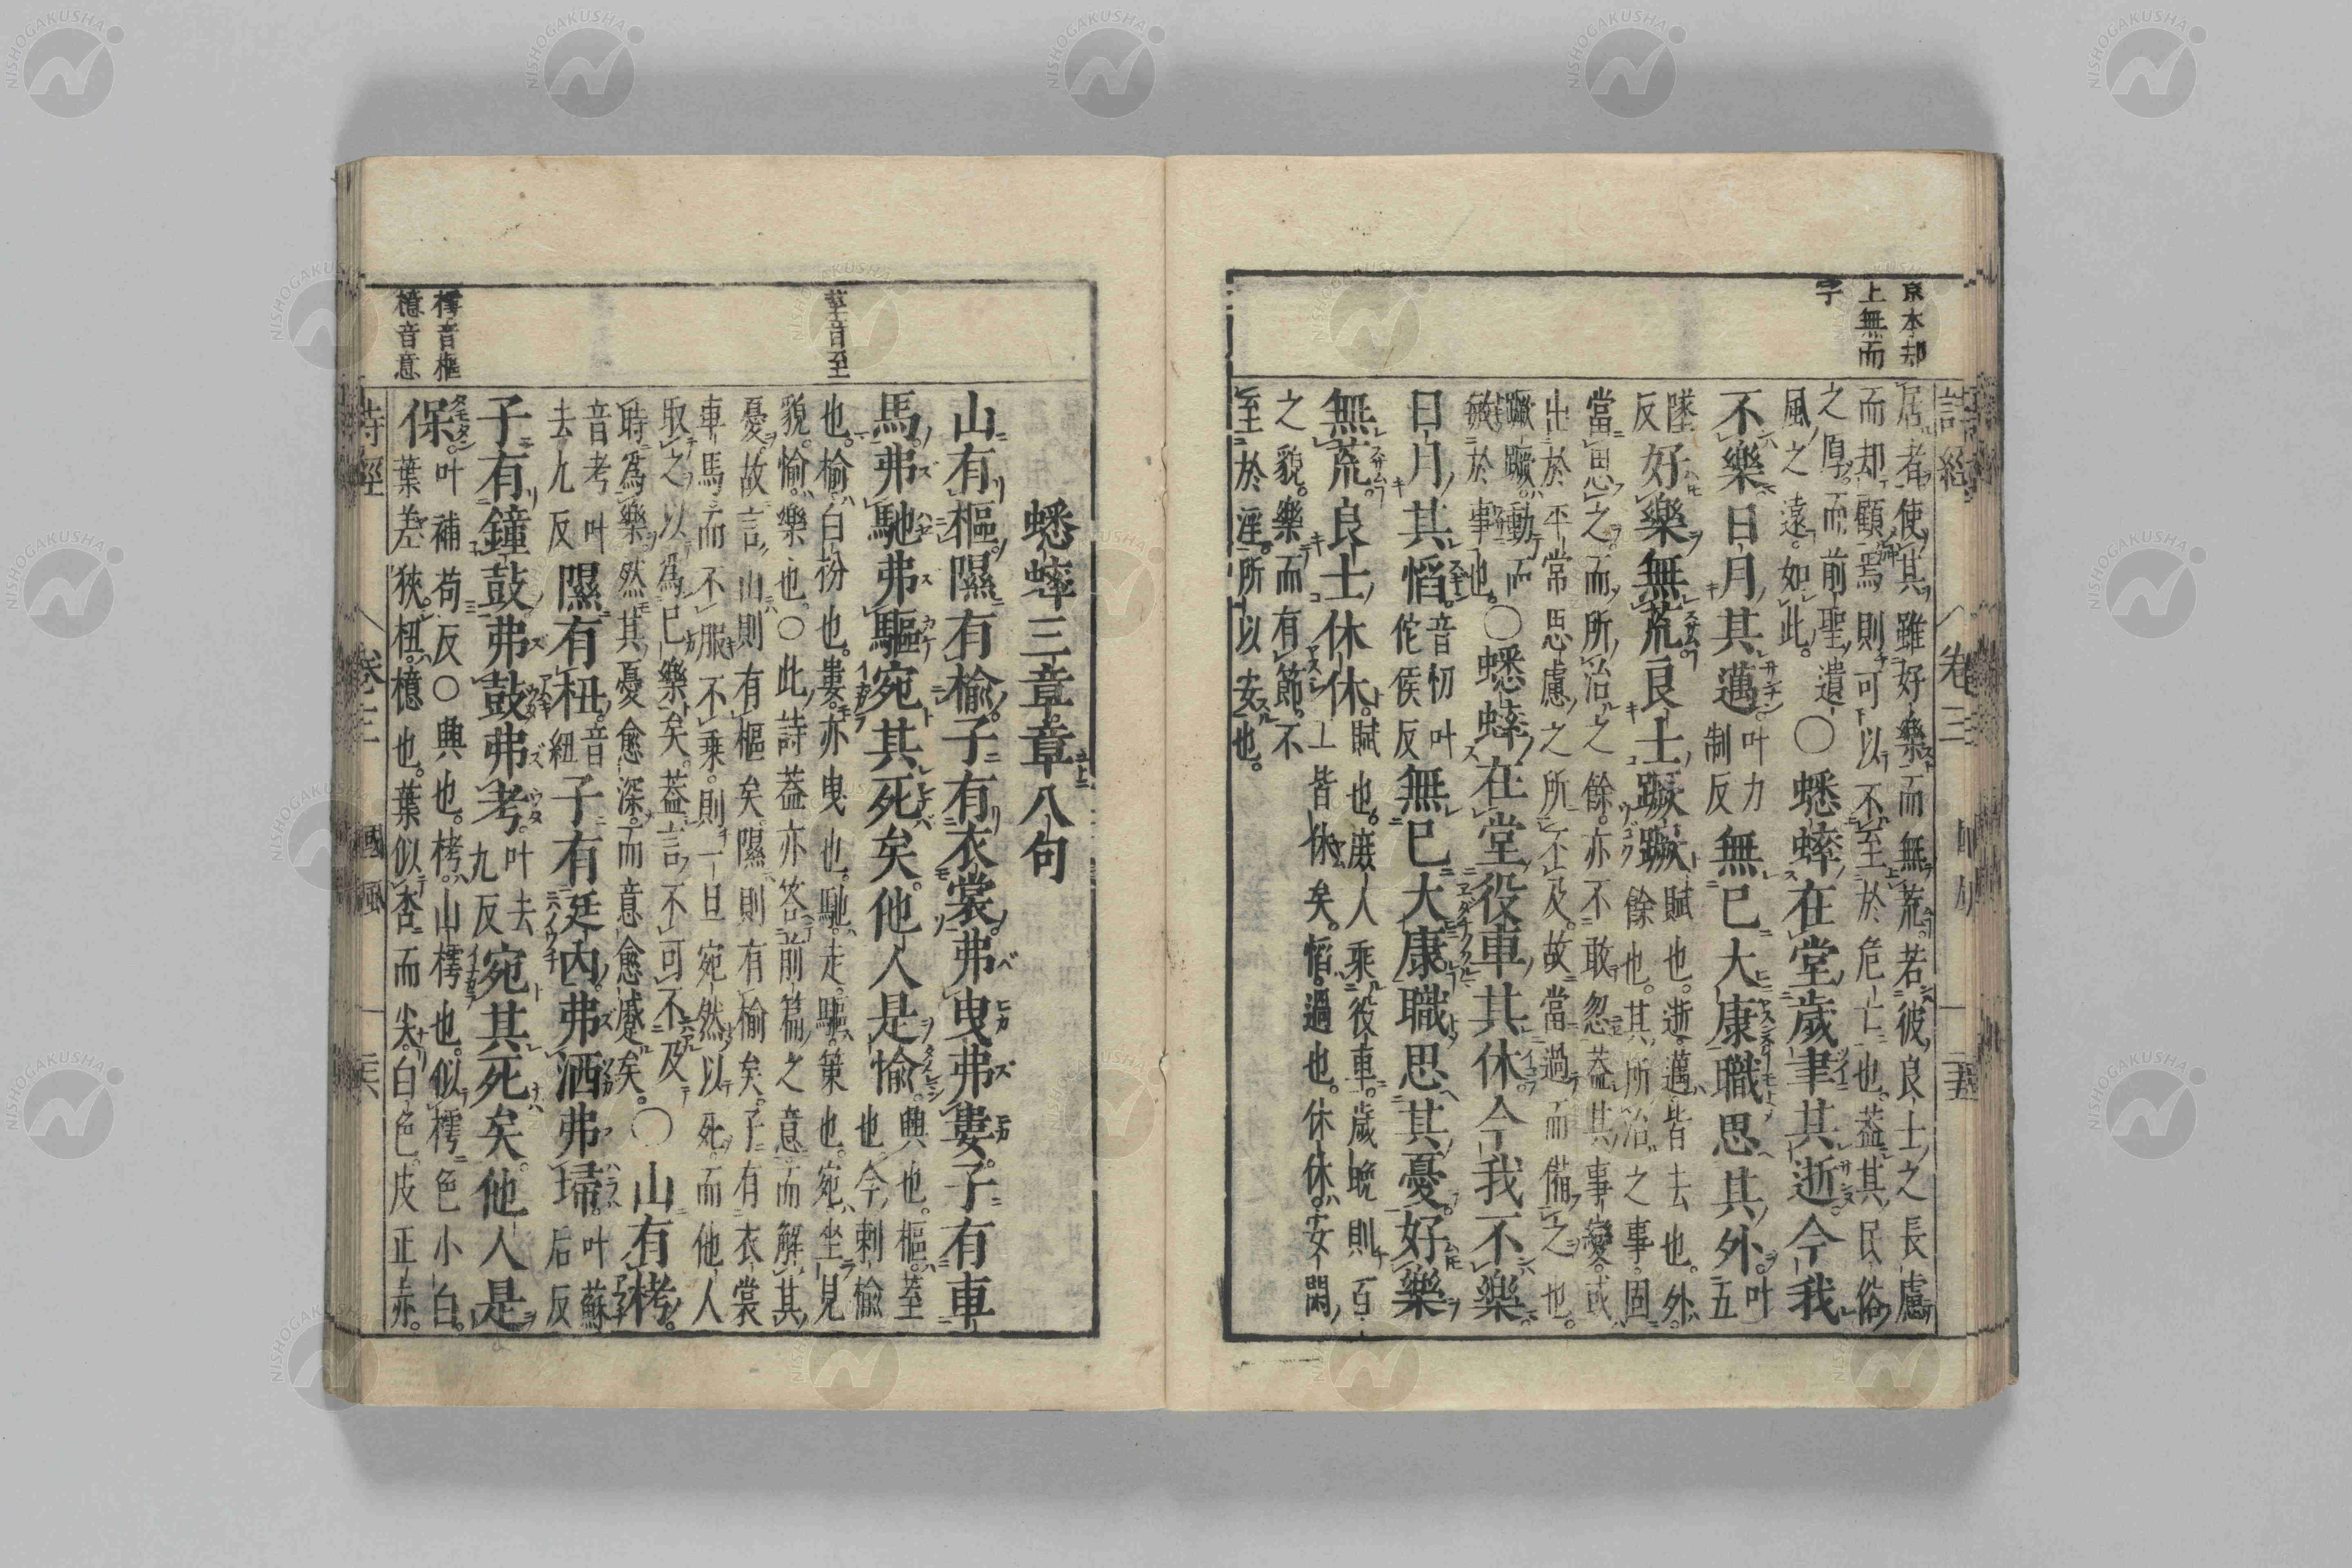 京本却
上無而
字
居者使其雖好樂而無荒若彼良士之長慮
而却顧焉則可以不至於危亡也蓋其民俗
之厚而前聖遺
風之遠如此○蟋蟀在堂歲聿其逝今我
不樂日月其邁叶力制反無已大康職思其外叶五
墜反好樂無荒良士蹶蹶賦也逝邁皆去也外餘也其所治之事固
當思之而所治之餘亦不敢忽蓋其事變或
出於平常思慮之所不及故當過而備之也
蹶蹶動而敏於事也○蟋蟀在堂役車其休今我不樂
日月其慆音叨叶佗侯反無已大康職思其憂好樂
無荒良士休休賦也庶人乘役車歲晚則百工皆休矣慆過也休休安閑
之貌樂而有節不
至於淫所以安也
蟋蟀三章章八句
山有樞隰有榆子有衣裳弗曳弗婁子有車
馬弗馳弗驅宛其死矣他人是愉興也樞荎也今刺榆
也榆白枌也婁亦曳也馳走驅策也宛坐見
貌愉樂也○此詩蓋亦答前篇之意而解其
憂故言山則有樞矣隰則有榆矣子有衣裳
車馬而不服不乘則一旦宛然以死而他人
取之以爲已樂矣蓋言不可不及
時爲樂然其憂愈深而意愈蹙矣○山有栲
音考叶去九反隰有杻音紐子有廷内弗洒弗埽叶蘇后反
子有鐘鼓弗鼓弗考叶去九反宛其死矣他人是
保叶補苟反○興也栲山樗也似樗色小白
葉差狹杻檍也葉似杏而尖白色皮正赤
荎音至
樗音樞
檍音意
詩經
卷三
國風